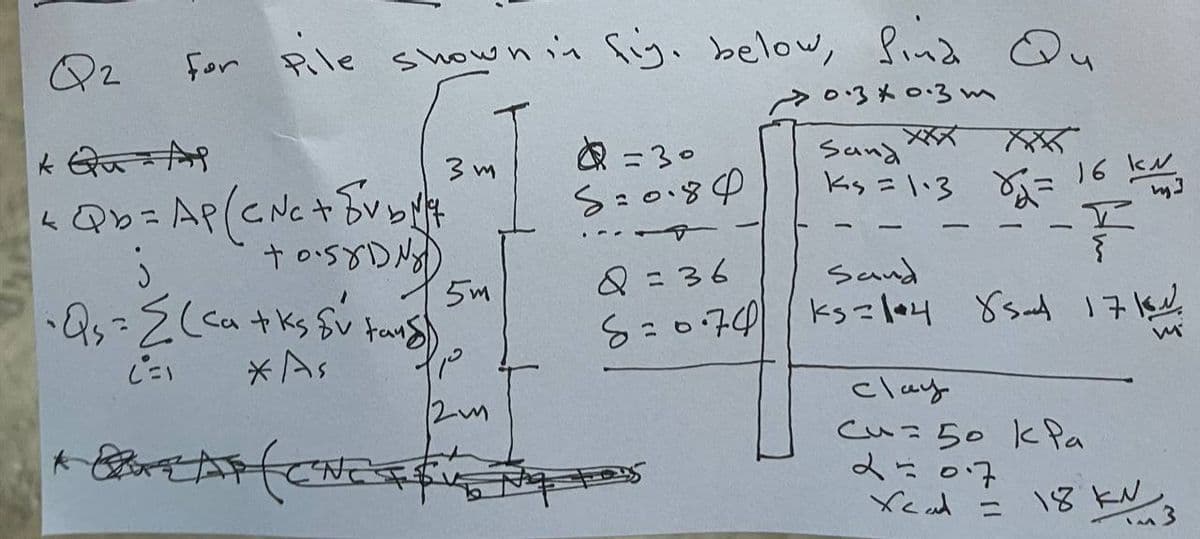 Q2 For Pile shown in fig. below, find Qu
0.3 * 0.3 m
* Qu = AP
* Qb = AP (C Nc + σ̄vb Nq
+ 0.5γD Nγ)
j
· Qs = Σ (Ca + Ks σ̄v' tanδ)
i=1 * As
3 m
5m
2m
Q = 30
S = 0.8 φ
Q = 36
S = 0.7φ
Sand
Ks = 1.3 γd = 16 kN/m3
Sand
Ks = 1.4 γsat 17 kN/m
Clay
Cu = 50 kPa
α = 0.7
γsat = 18 kN/m3